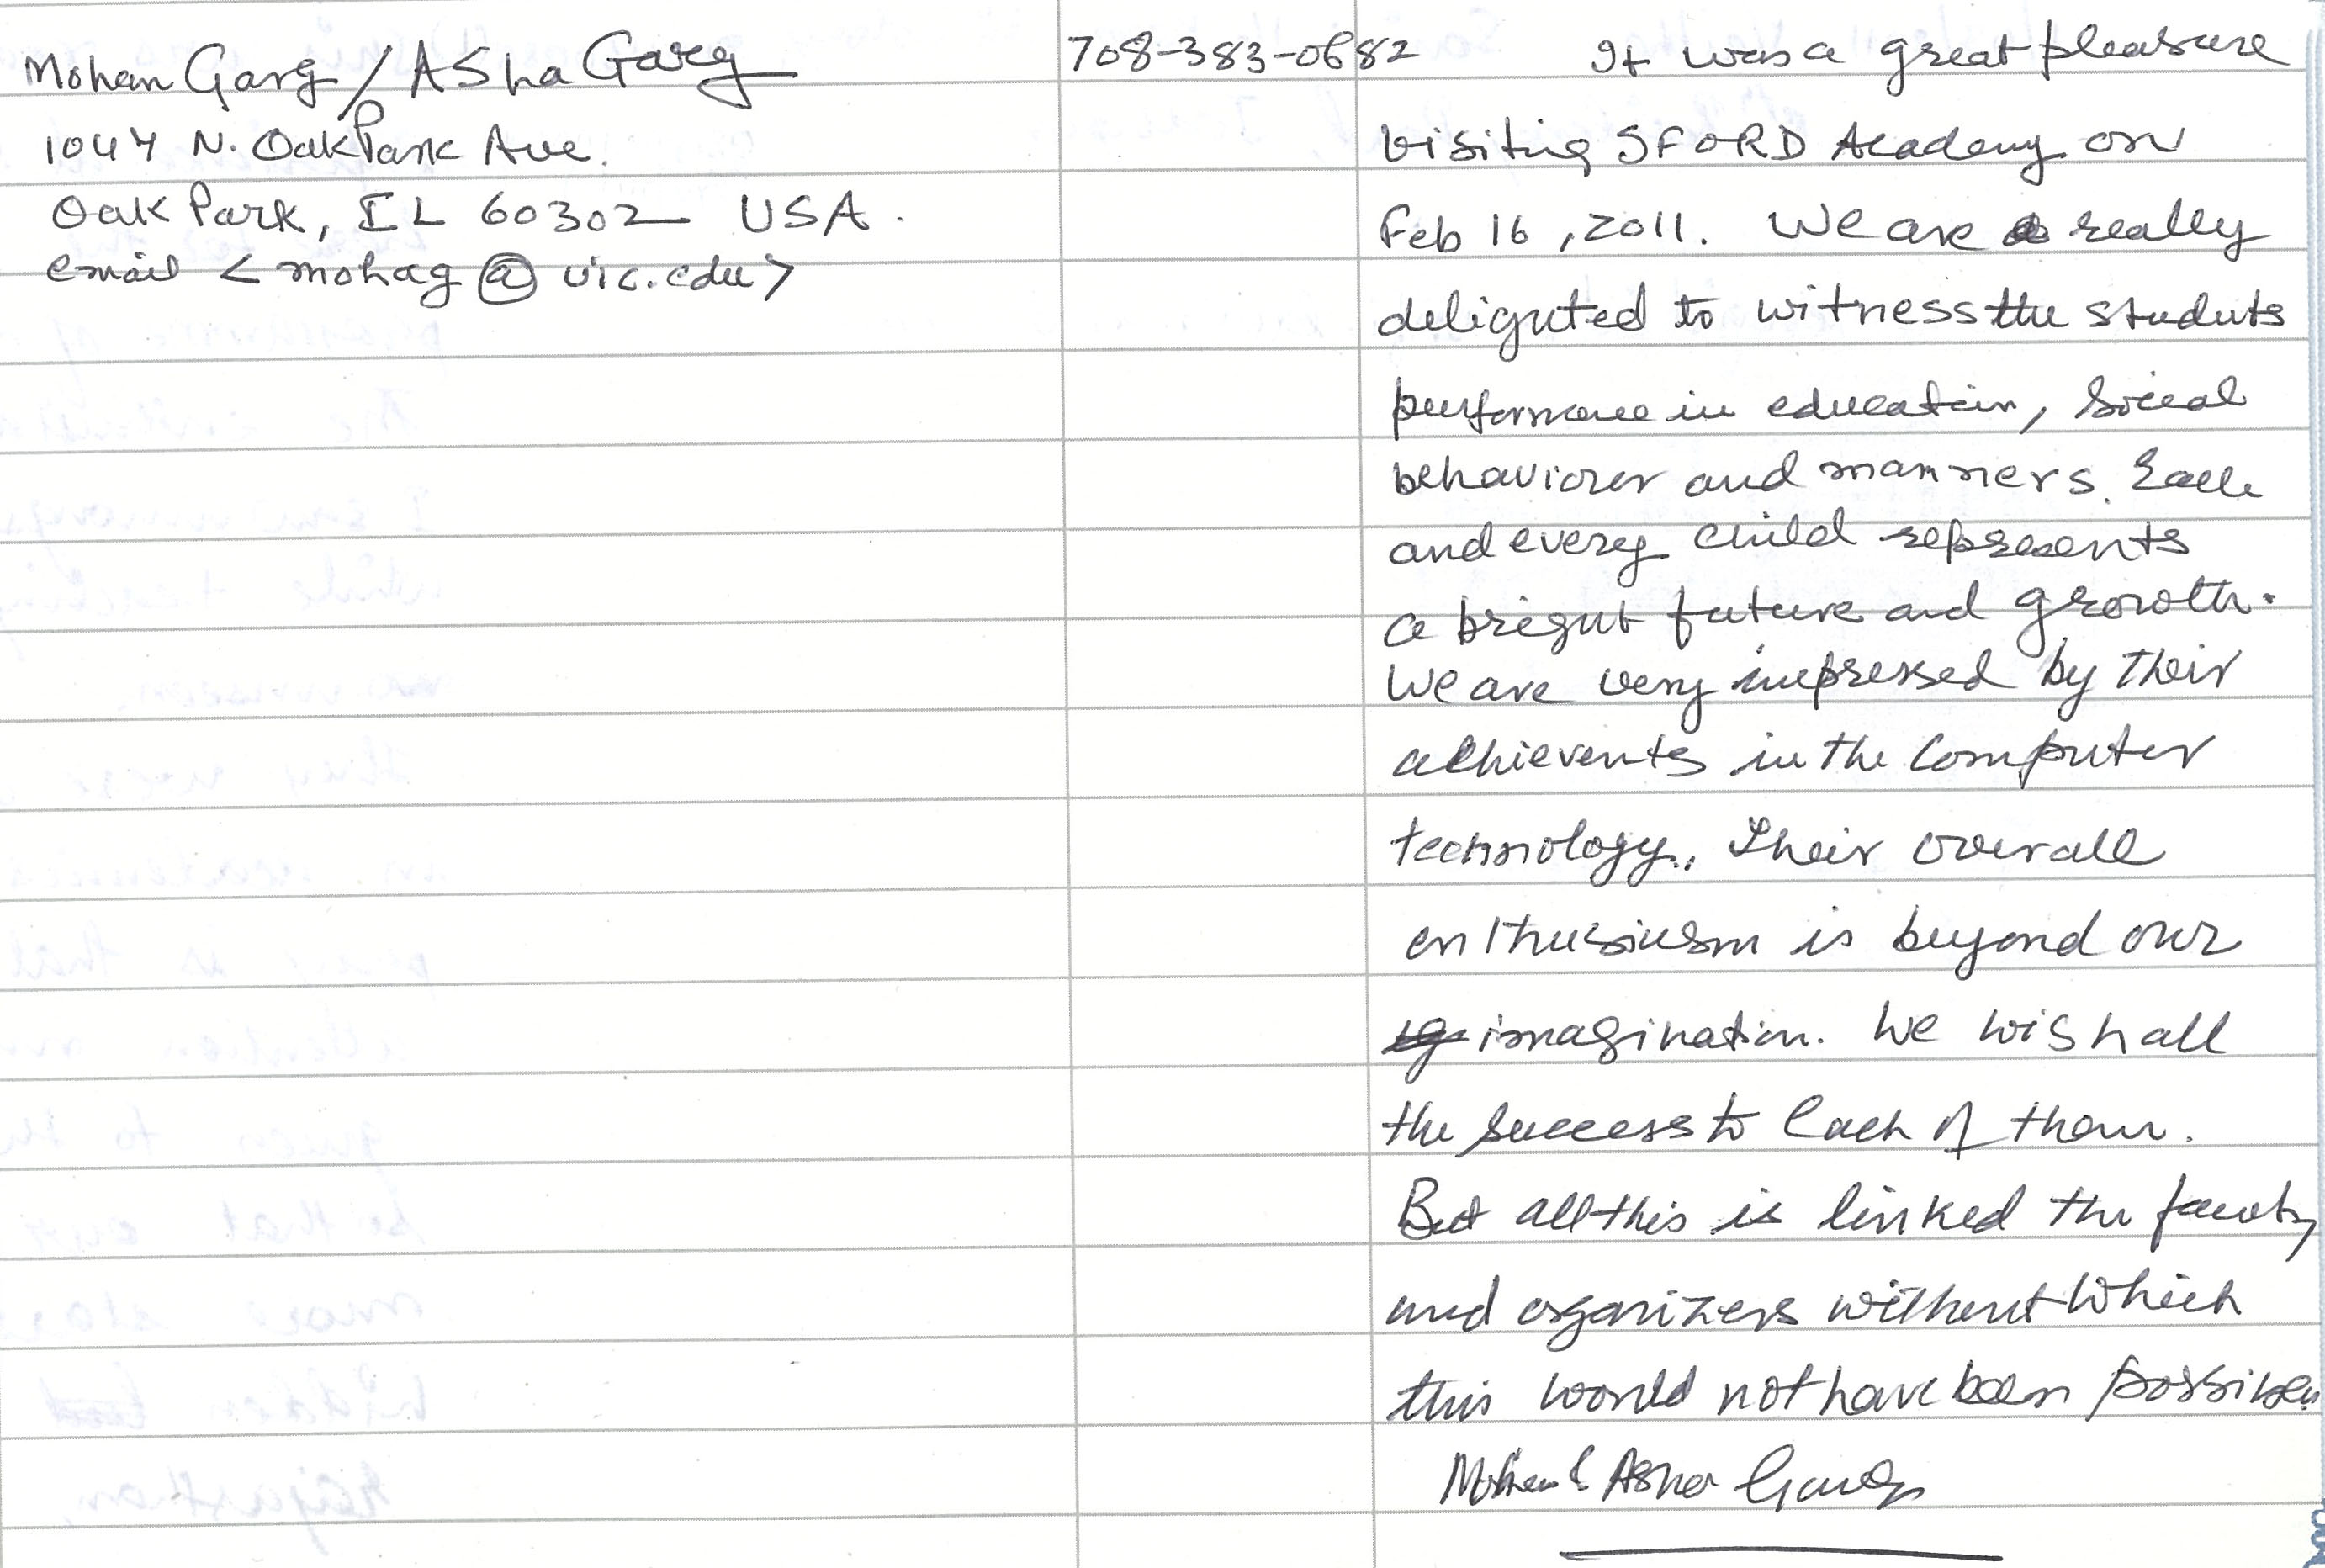 Mohan Garg / Asha Garg
1047 N. Oak Park Ave.
Oak Park, IL 60302 USA.
email < mohag @ uic.edu >
708-383-0682
It was a great pleasure
visiting SFORD Academy on
Feb 16, 2011. We are really
delighted to witness the students
performance in education, Social
behaviour and manners. Each
and every child represents
a bright future and growth.
We are very impressed by their
achievents in the Computer
technology. Their overall
enthusiasm is beyond our
imagination. We wish all
the success to each of them.
But all this is linked the faculty
and organizers without which
this would not have been possible.
Mohan & Asha Garg